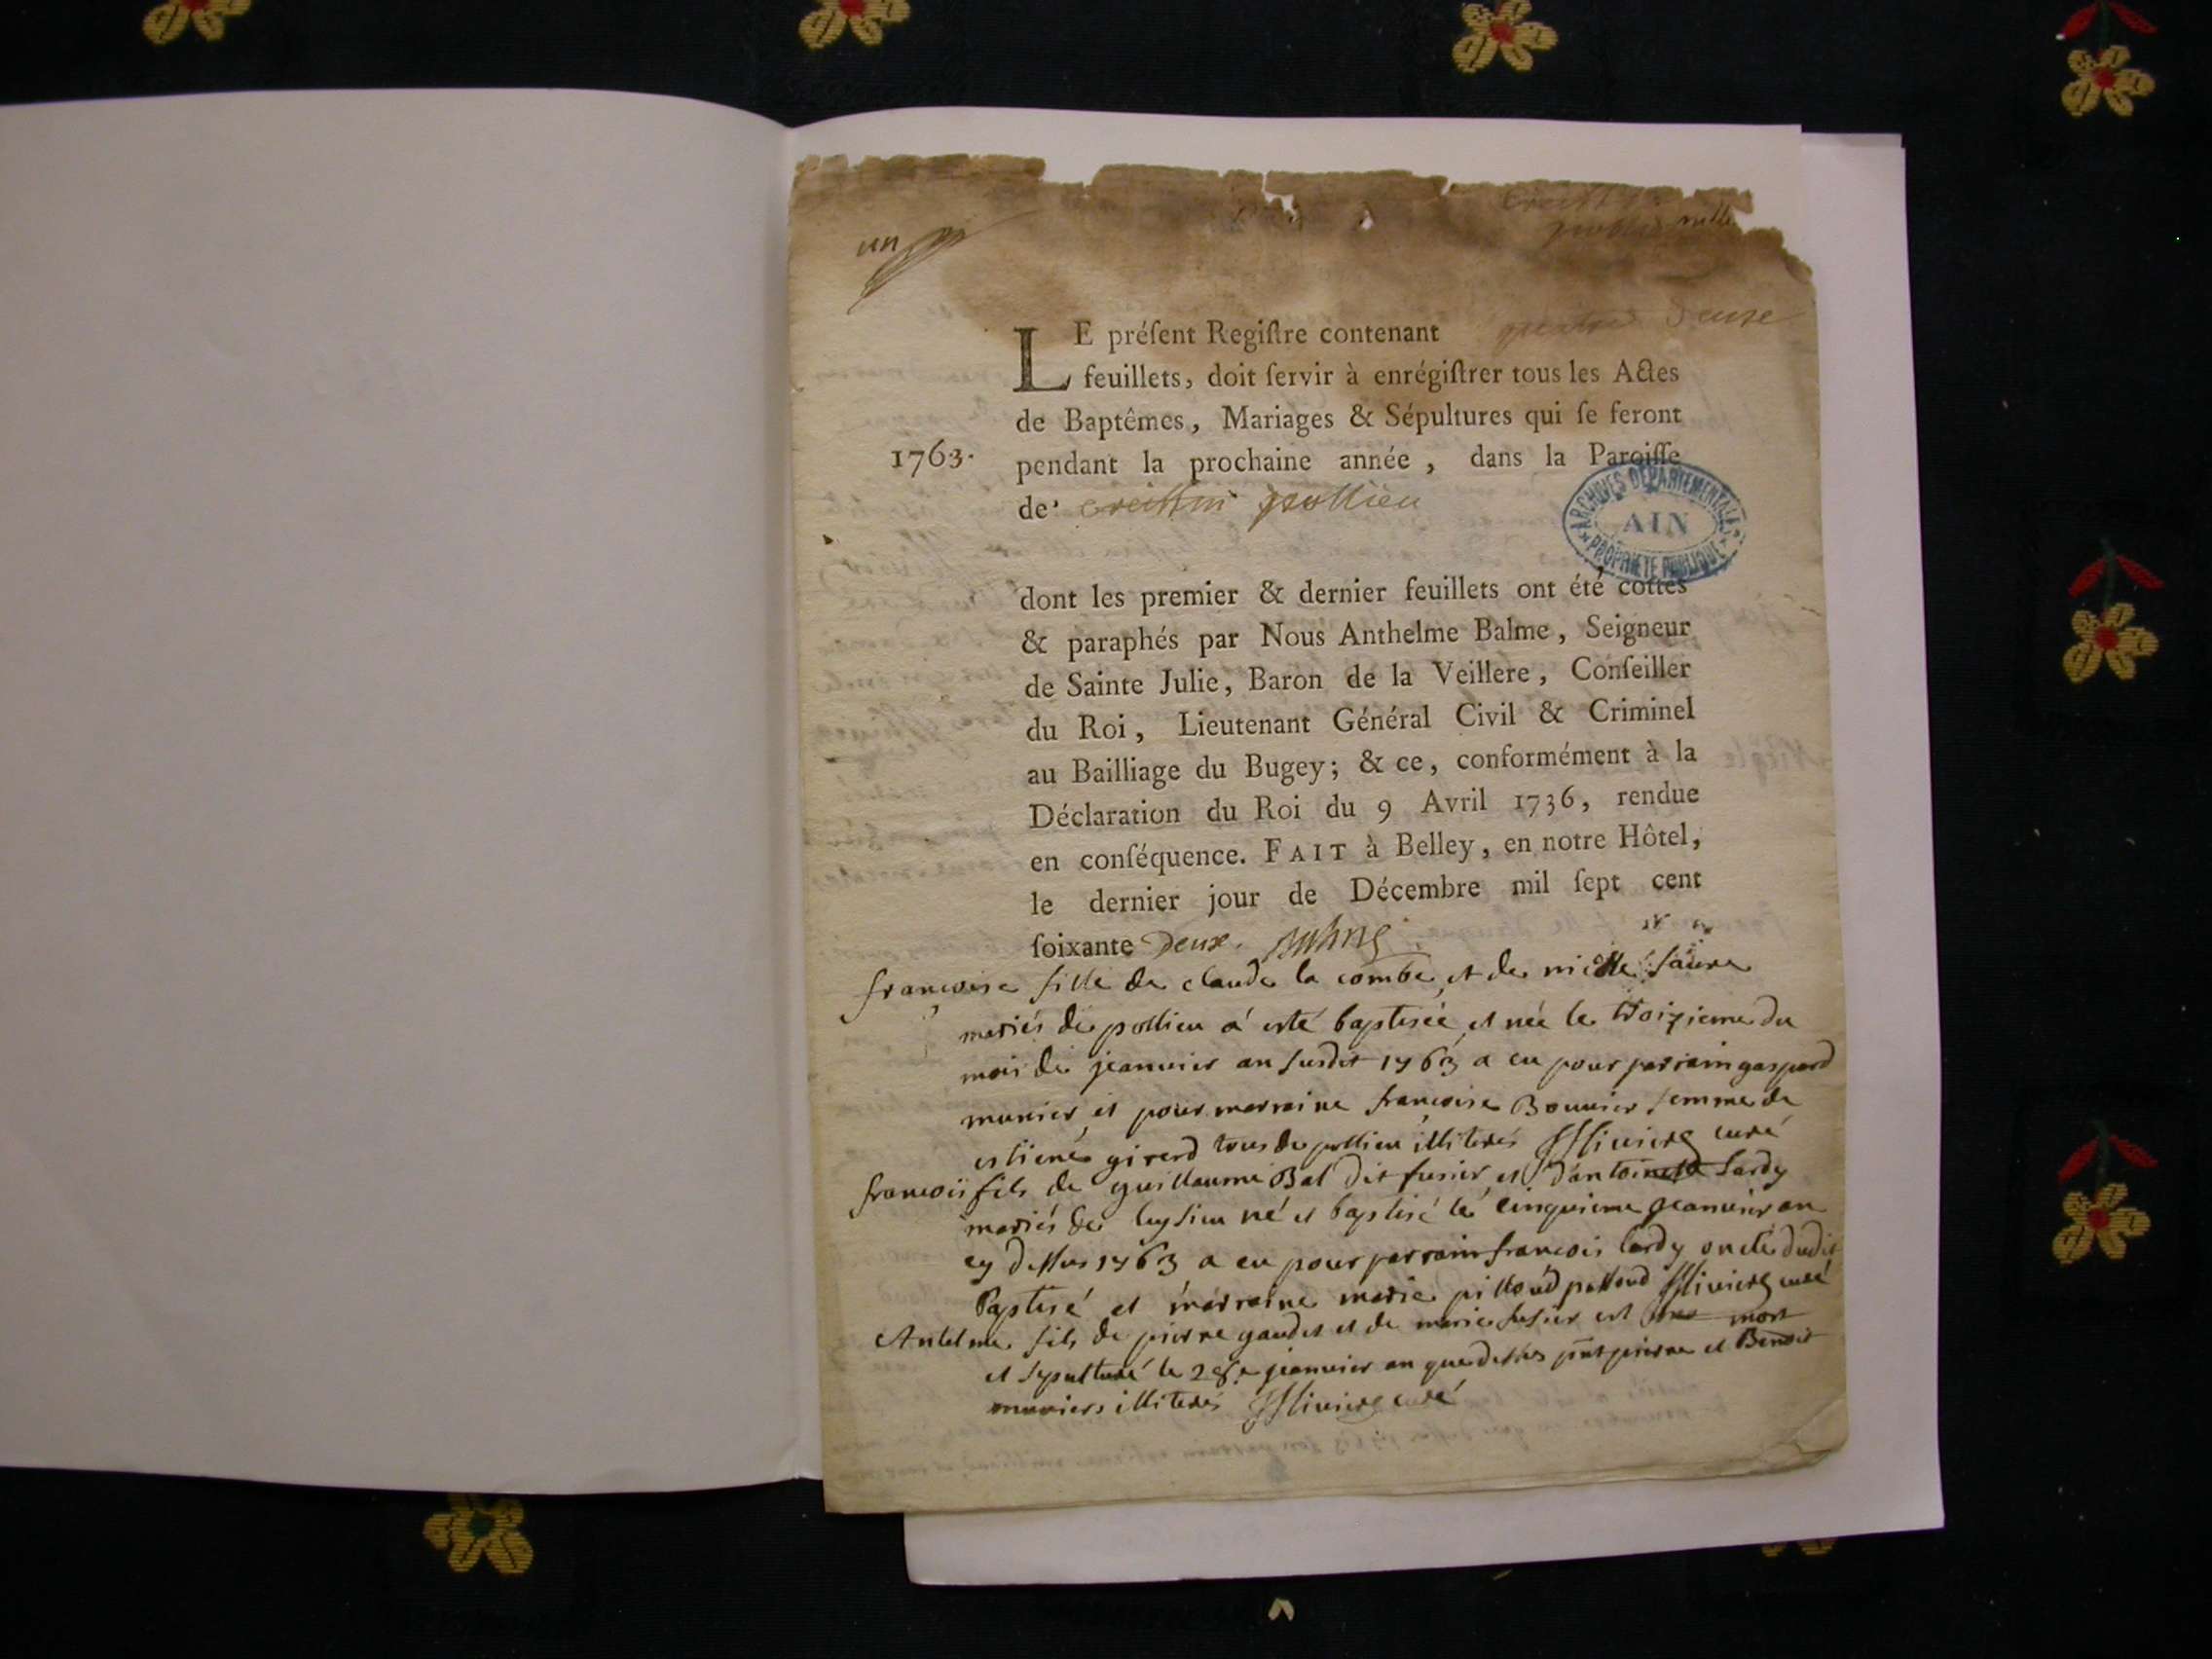 un
LE préſent Regiſtre contenant
feuillets, doit ſervir à enrégiſtrer tous les Actes
de Baptêmes, Mariages & Sépultures qui ſe feront
1763. pendant la prochaine année, dans la Paroiſſe
de pollieu
ARCHIVES DEPARTEMENTALES
AIN
PROPRIETE PUBLIQUE
dont les premier & dernier feuillets ont été cottés
& paraphés par Nous Anthelme Balme, Seigneur
de Sainte Julie, Baron de la Veillere, Conſeiller
du Roi, Lieutenant Général Civil & Criminel
au Bailliage du Bugey; & ce, conformément à la
Déclaration du Roi du 9 Avril 1736, rendue
en conſéquence. FAIT à Belley, en notre Hôtel,
le dernier jour de Décembre mil ſept cent
ſoixante Deux.
françoise fille de claude la combe et de
mariés de pollieu a esté baptisée et née le troizieme du
mois de jeanvier an susdit 1763 a eu pour parrain gaspard
munier et pour marraine françoise Bouvier femme de
estiene girerd tous de pollieu illiterés curé
françois fils de guillaume Bal dit fusier et d'antoinette lardy
mariés de leysieu né et baptisé le cinquieme jeanvier an
cy dessus 1763 a eu pour parrain françois lardy oncle dudit
baptisé et marraine marie curé
Antelme fils de pierre gaudet et de marie fusier est mort
et sepulturé le 28e jeanvier an que dessus pnt pierre et Benoit
muniers illiterés curé